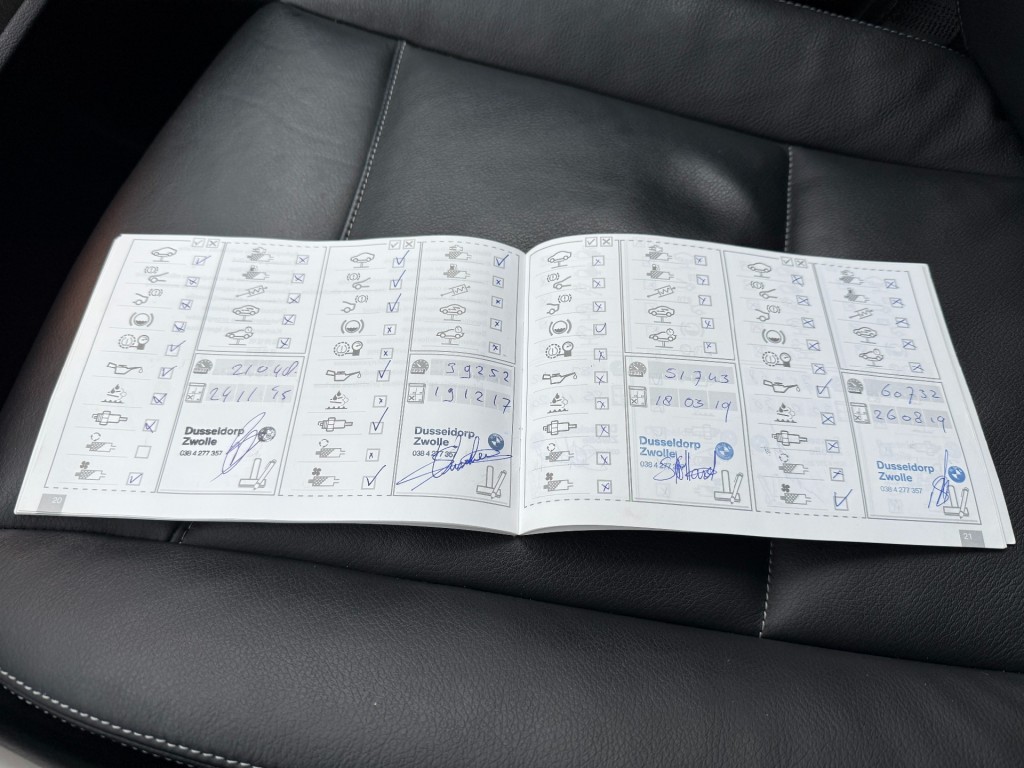 21040
24 11 15
Dusseldorp
Zwolle
038 4 277 357
20
39252
19 12 17
Dusseldorp
Zwolle
038 4 277 357
51743
18 03 19
Dusseldorp
Zwolle
038 4 277
60732
26 08 19
Dusseldorp
Zwolle
038 4 277 357
21